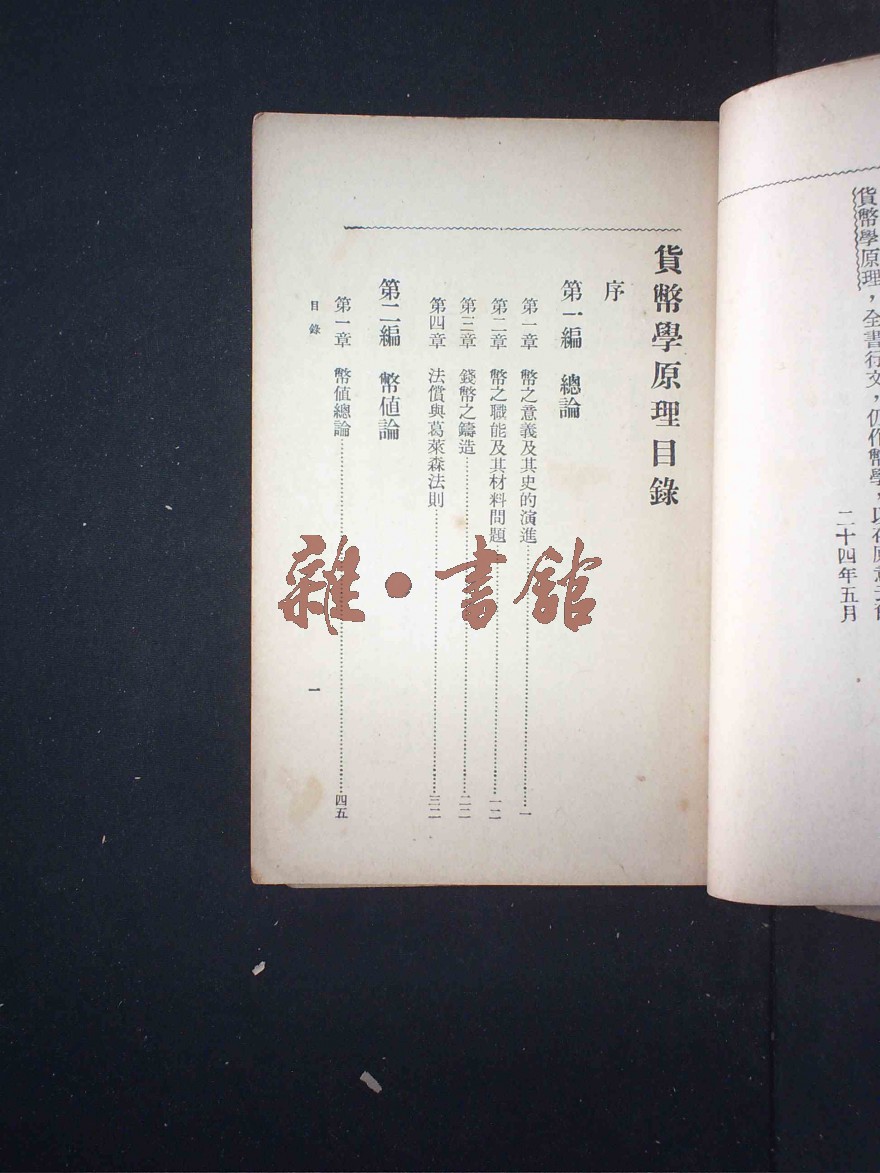 貨幣學原理，全書行文，仍作幣學，以存原意
二十四年五月
貨幣學原理目錄
序
第一編　總論
第一章　幣之意義及其史的演進……一
第二章　幣之職能及其材料問題……一二
第三章　錢幣之鑄造……二二
第四章　法償與葛萊森法則……三二
第二編　幣值論
第一章　幣值總論……四五
目錄
一
雜·書館